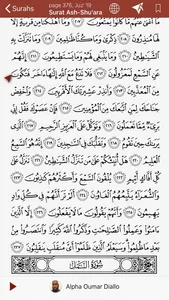 Surahs
page 376, Juz' 19
Surat Ash-Shu'ara
مَآ أَغْنَىٰ عَنْهُم مَّا كَانُوا۟ يُمَتَّعُونَ ٢٠٧ وَمَآ أَهْلَكْنَا مِن قَرْيَةٍ إِلَّا لَهَا
مُنذِرُونَ ٢٠٨ ذِكْرَىٰ وَمَا كُنَّا ظَٰلِمِينَ ٢٠٩ وَمَا تَنَزَّلَتْ بِهِ
ٱلشَّيَٰطِينُ ٢١٠ وَمَا يَنۢبَغِى لَهُمْ وَمَا يَسْتَطِيعُونَ ٢١١ إِنَّهُمْ
عَنِ ٱلسَّمْعِ لَمَعْزُولُونَ ٢١٢ فَلَا تَدْعُ مَعَ ٱللَّهِ إِلَٰهًا ءَاخَرَ فَتَكُونَ
مِنَ ٱلْمُعَذَّبِينَ ٢١٣ وَأَنذِرْ عَشِيرَتَكَ ٱلْأَقْرَبِينَ ٢١٤ وَٱخْفِضْ
جَنَاحَكَ لِمَنِ ٱتَّبَعَكَ مِنَ ٱلْمُؤْمِنِينَ ٢١٥ فَإِنْ عَصَوْكَ فَقُلْ إِنِّى
بَرِىٓءٌ مِّمَّا تَعْمَلُونَ ٢١٦ وَتَوَكَّلْ عَلَى ٱلْعَزِيزِ ٱلرَّحِيمِ ٢١٧ ٱلَّذِى
يَرَىٰكَ حِينَ تَقُومُ ٢١٨ وَتَقَلُّبَكَ فِى ٱلسَّٰجِدِينَ ٢١٩ إِنَّهُۥ هُوَ
ٱلسَّمِيعُ ٱلْعَلِيمُ ٢٢٠ هَلْ أُنَبِّئُكُمْ عَلَىٰ مَن تَنَزَّلُ ٱلشَّيَٰطِينُ ٢٢١
تَنَزَّلُ عَلَىٰ كُلِّ أَفَّاكٍ أَثِيمٍ ٢٢٢ يُلْقُونَ ٱلسَّمْعَ وَأَكْثَرُهُمْ كَٰذِبُونَ ٢٢٣
وَٱلشُّعَرَآءُ يَتَّبِعُهُمُ ٱلْغَاوُۥنَ ٢٢٤ أَلَمْ تَرَ أَنَّهُمْ فِى كُلِّ وَادٍ
يَهِيمُونَ ٢٢٥ وَأَنَّهُمْ يَقُولُونَ مَا لَا يَفْعَلُونَ ٢٢٦ إِلَّا ٱلَّذِينَ
ءَامَنُوا۟ وَعَمِلُوا۟ ٱلصَّٰلِحَٰتِ وَذَكَرُوا۟ ٱللَّهَ كَثِيرًا وَٱنتَصَرُوا۟ مِنۢ
بَعْدِ مَا ظُلِمُوا۟ وَسَيَعْلَمُ ٱلَّذِينَ ظَلَمُوٓا۟ أَىَّ مُنقَلَبٍ يَنقَلِبُونَ ٢٢٧
سُورَةُ النَّمْلِ
Alpha Oumar Diallo